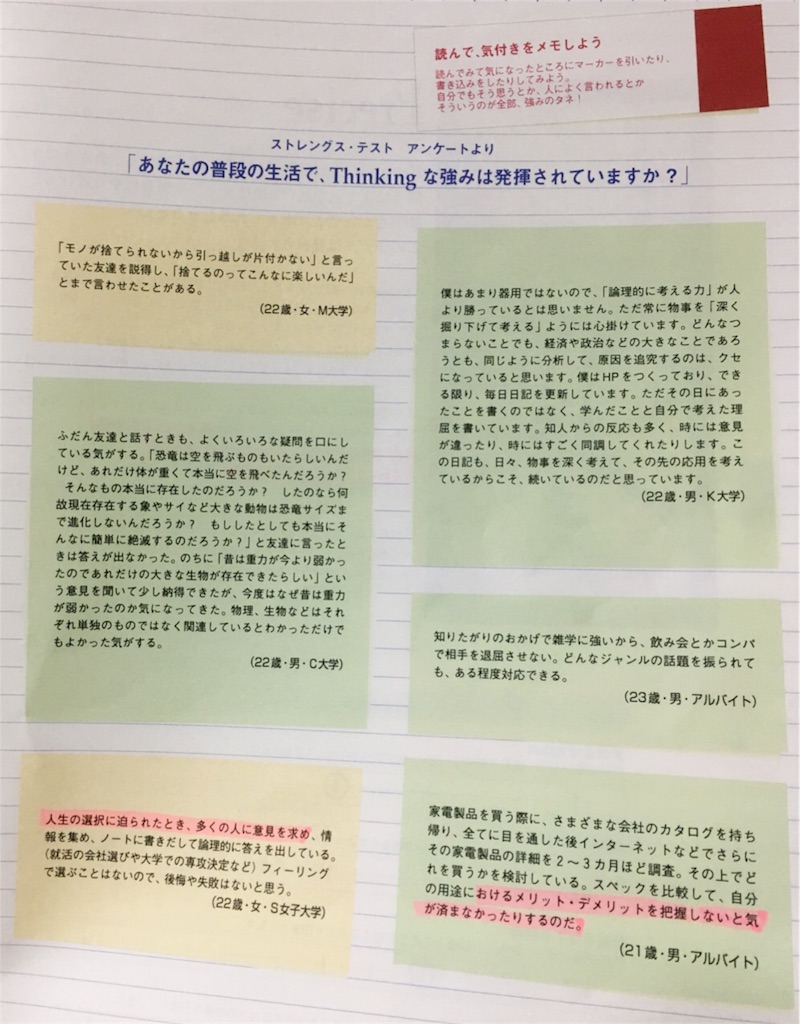 読んで、気付きをメモしよう
読んでみて気になったところにマーカーを引いたり、
書き込みをしたりしてみよう。
自分でもそう思うとか、人によく言われるとか
そういうのが全部、強みのタネ！
ストレングス・テスト　アンケートより
「あなたの普段の生活で、Thinkingな強みは発揮されていますか？」
「モノが捨てられないから引っ越しが片付かない」と言っ
ていた友達を説得し、「捨てるのってこんなに楽しいんだ」
とまで言わせたことがある。
（22歳・女・M大学）
ふだん友達と話すときも、よくいろいろな疑問を口にし
ている気がする。「恐竜は空を飛ぶものもいたらしいんだ
けど、あれだけ体が重くて本当に空を飛べたんだろうか？
　そんなもの本当に存在したのだろうか？　したのなら何
故現在存在する象やサイなど大きな動物は恐竜サイズま
で進化しないんだろうか？　もししたとしても本当にそ
んなに簡単に絶滅するのだろうか？」と友達に言ったと
きは答えが出なかった。のちに「昔は重力が今より弱かっ
たのであれだけの大きな生物が存在できたらしい」とい
う意見を聞いて少し納得できたが、今度はなぜ昔は重力
が弱かったのか気になってきた。物理、生物などはそれ
ぞれ単独のものではなく関連しているとわかっただけで
もよかった気がする。
（22歳・男・C大学）
人生の選択に迫られたとき、多くの人に意見を求め、情
報を集め、ノートに書きだして論理的に答えを出している。
（就活の会社選びや大学での専攻決定など）フィーリング
で選ぶことはないので、後悔や失敗はないと思う。
（22歳・女・S女子大学）
僕はあまり器用ではないので、「論理的に考える力」が人
より勝っているとは思いません。ただ常に物事を「深く
掘り下げて考える」ようには心掛けています。どんなつ
まらないことでも、経済や政治などの大きなことであろ
うとも、同じように分析して、原因を追究するのは、クセ
になっていると思います。僕はHPをつくっており、でき
る限り、毎日日記を更新しています。ただその日にあっ
たことを書くのではなく、学んだことと自分で考えた理
屈を書いています。知人からの反応も多く、時には意見
が違ったり、時にはすごく同調してくれたりします。こ
の日記も、日々、物事を深く考えて、その先の応用を考え
ているからこそ、続いているのだと思っています。
（22歳・男・K大学）
知りたがりのおかげで雑学に強いから、飲み会とかコンパ
で相手を退屈させない。どんなジャンルの話題を振られて
も、ある程度対応できる。
（23歳・男・アルバイト）
家電製品を買う際に、さまざまな会社のカタログを持ち
帰り、全てに目を通した後インターネットなどでさらに
その家電製品の詳細を2～3カ月ほど調査。その上でど
れを買うかを検討している。スペックを比較して、自分
の用途におけるメリット・デメリットを把握しないと気
が済まなかったりするのだ。
（21歳・男・アルバイト）